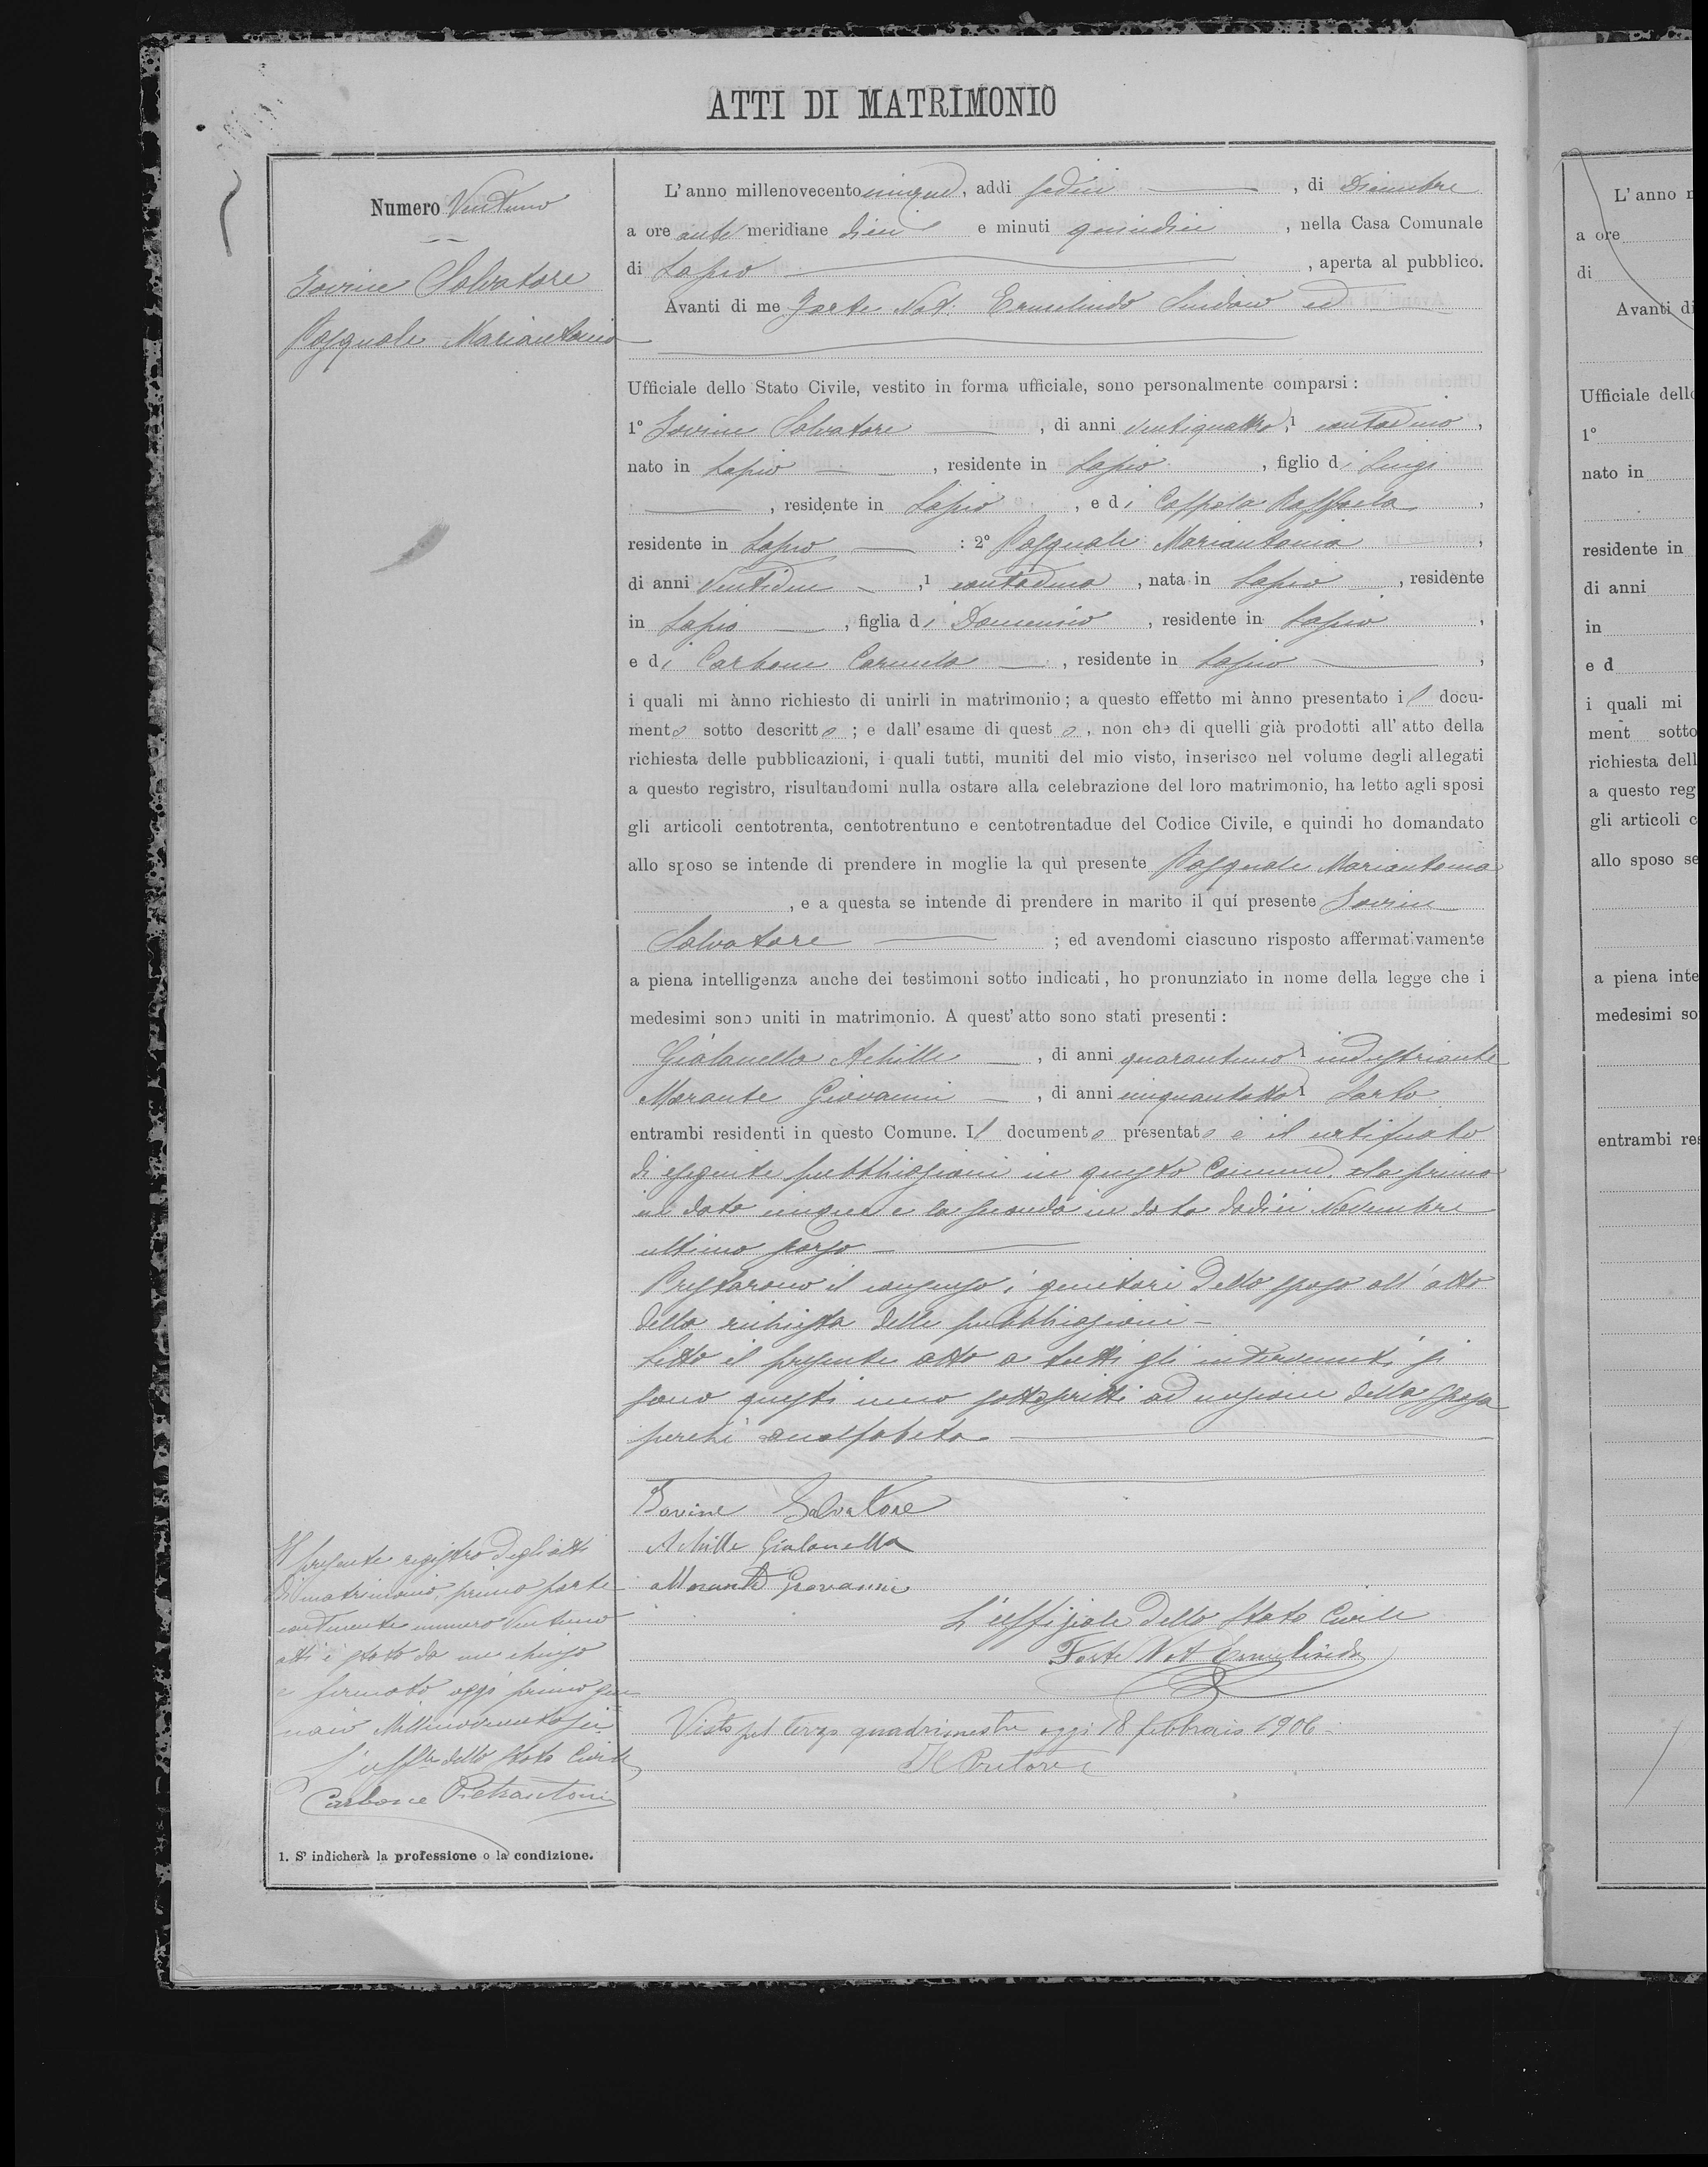 ATTI DI MATRIMONIO
Numero Ventuno
Iovine Salvatore
Pasquale Mariantonia
L'anno millenovecento cinque, addi sedici, di Dicembre
a ore anti meridiane dieci e minuti quindici, nella Casa Comunale
di Lapio, aperta al pubblico.
Avanti di me Forte Not. Ermelindo Sindaco ed
Ufficiale dello Stato Civile, vestito in forma ufficiale, sono personalmente comparsi:
1° Iovine Salvatore, di anni ventiquattro,¹ contadino,
nato in Lapio, residente in Lapio, figlio di Luigi
, residente in Lapio, e di Coppola Raffaela,
residente in Lapio: 2° Pasquale Mariantonia,
di anni ventidue,¹ contadina, nata in Lapio, residente
in Lapio, figlia di Domenico, residente in Lapio,
e di Carbone Carmela, residente in Lapio,
i quali mi ànno richiesto di unirli in matrimonio; a questo effetto mi ànno presentato il docu-
mento sotto descritto; e dall'esame di questo, non che di quelli già prodotti all'atto della
richiesta delle pubblicazioni, i quali tutti, muniti del mio visto, inserisco nel volume degli allegati
a questo registro, risultandomi nulla ostare alla celebrazione del loro matrimonio, ha letto agli sposi
gli articoli centotrenta, centotrentuno e centotrentadue del Codice Civile, e quindi ho domandato
allo sposo se intende di prendere in moglie la qui presente Pasquale Mariantonia
, e a questa se intende di prendere in marito il quí presente Iovine
Salvatore; ed avendomi ciascuno risposto affermativamente
a piena intelligenza anche dei testimoni sotto indicati, ho pronunziato in nome della legge che i
medesimi sono uniti in matrimonio. A quest'atto sono stati presenti:
Gialanella Achille, di anni quarantuno¹ industriante
Morante Giovanni, di anni cinquantotto¹ sarto
entrambi residenti in questo Comune. Il documento presentato è il certificato
di eseguite pubblicazioni in questo Comune, la prima
in data cinque e la seconda in data dodici Novembre
ultimo scorso
Prestarono il consenso i genitori dello sposo all'atto
della richiesta delle pubblicazioni -
Letto il presente atto a tutti gli intervenuti si
sono questi meco sottoscritti ad eccezione della sposa
perché analfabeta.
Iovine Salvatore
Achille Gialanella
Morante Giovanni
L'uffiziale dello Stato Civile
Forte Not Ermelindo
Visto pel terzo quadrimestre oggi 18 febbraio 1906
Il Pretore
Il presente registro degli atti
di matrimonio, prima parte
contenente numero ventuno
atti è stato da me chiuso
e firmato oggi primo gen
naio Millenovecentosei
L'uff.le dello Stato Civile
Carbone Pietrantonio
1. S'indicherà la professione o la condizione.
L'anno
a ore
di
Avanti di
Ufficiale dello
1°
nato in
residente in
di anni
in
e d
i quali mi
ment sotto
richiesta dell
a questo reg
gli articoli c
allo sposo se
a piena inte
medesimi so
entrambi res